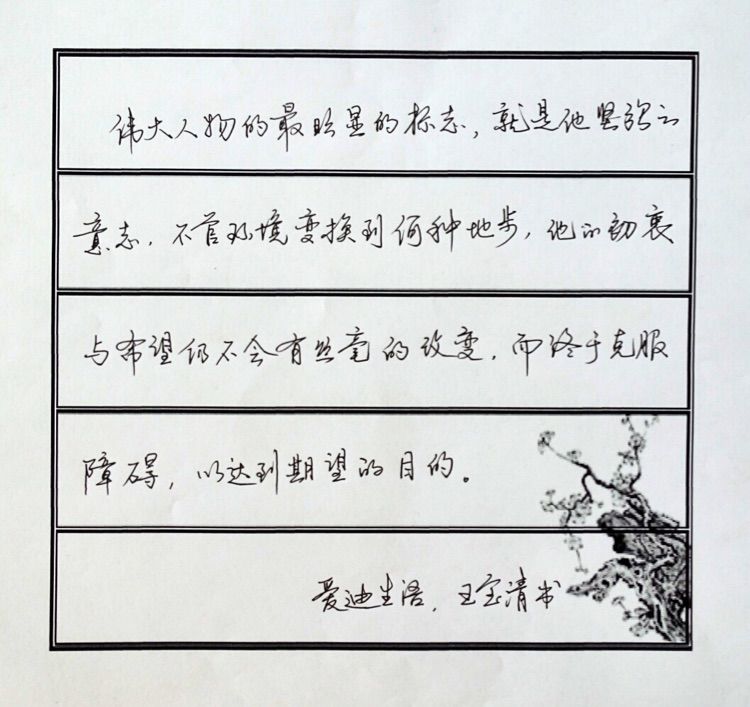 伟大人物的最明显的标志，就是他坚强的
意志，不管环境变换到何种地步，他的初衷
与希望仍不会有丝毫的改变，而终于克服
障碍，以达到期望的目的。
爱迪生语，王宝清书